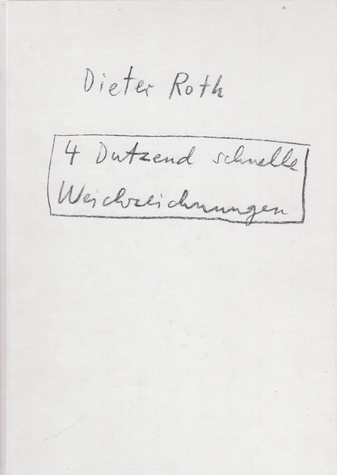 Dieter Roth
4 Dutzend schnelle
Weichzeichnungen